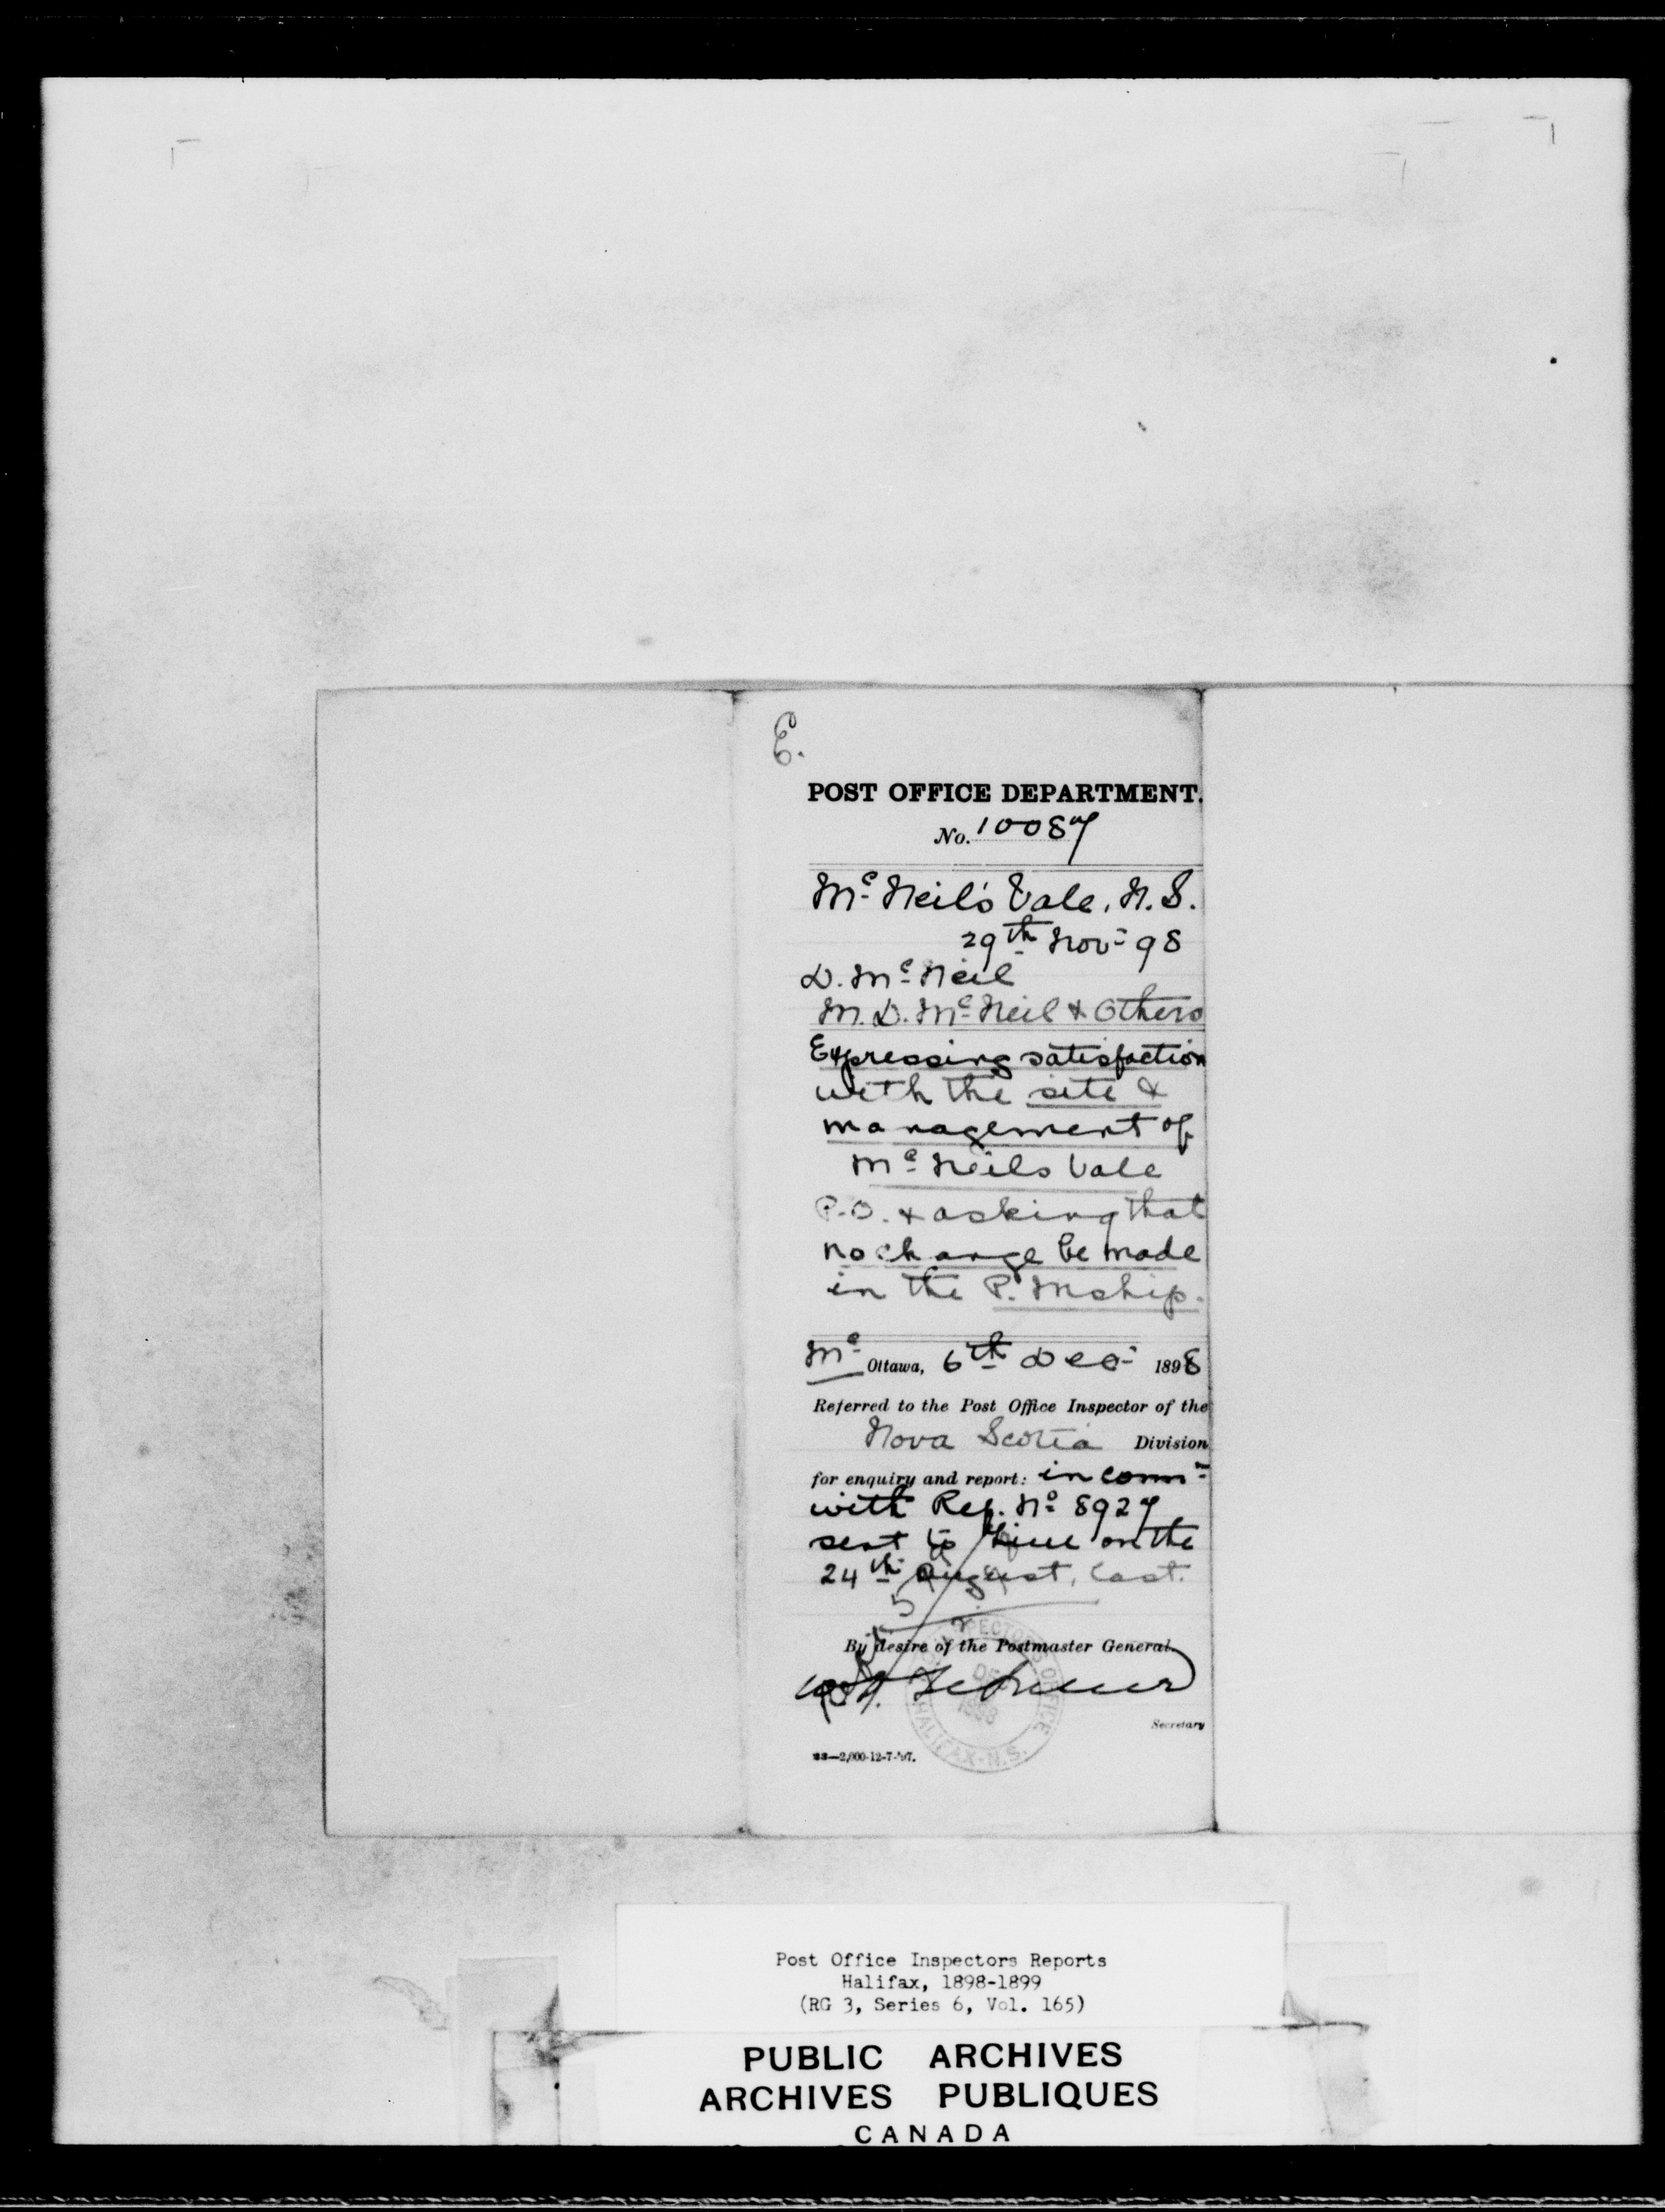 E.
POST OFFICE DEPARTMENT.
No. 10087
Mc Neil's Vale, N.S.
29th Nov- 98
D. Mc Neil
M. D. Mc Neil & Others
Expressing satisfaction
with the site &
management of
Mc Neils Vale
P.O. & asking that
no change be made
in the P. Mship.
Mc Ottawa, 6th Dec- 1898
Referred to the Post Office Inspector of the
Nova Scotia Division
for enquiry and report: in conn-
with Ref. No 8927
sent to him on the
24th August, last.
By desire of the Postmaster General
Secretary
INSPECTOR'S OFFICE
DE
1898
HALIFAX-N.S.
—2,000-12-7-'97.
Post Office Inspectors Reports
Halifax, 1898-1899
(RG 3, Series 6, Vol. 165)
PUBLIC ARCHIVES
ARCHIVES PUBLIQUES
CANADA